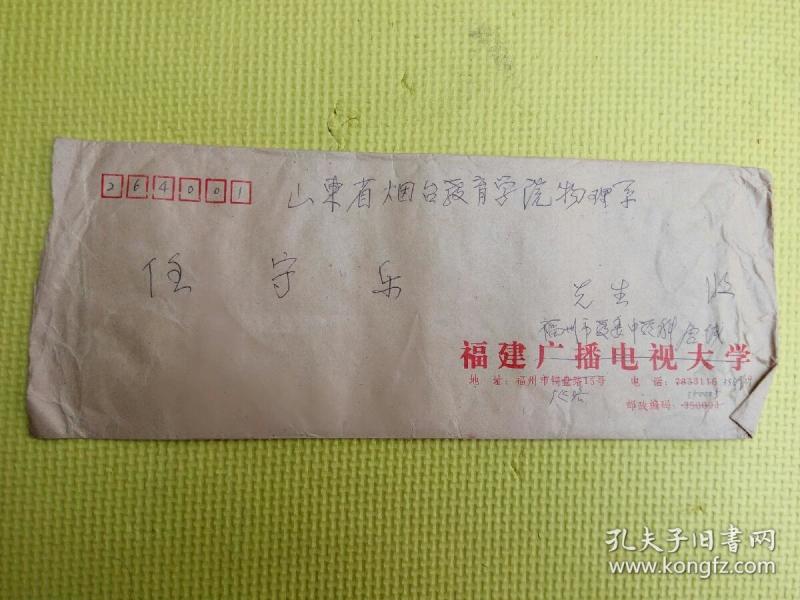 264001
山東省烟台教育学院物理系
任守乐
先生 收
福州市
福建广播电视大学
地 址:福州市铜盘路15号 电 话:2833116
邮政编码:350003
孔夫子旧书网
www.kongfz.com